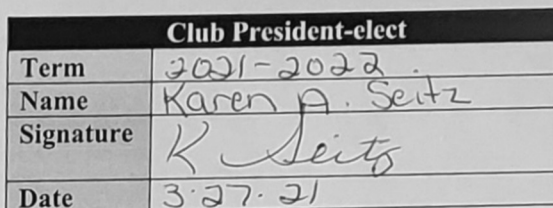 Club President-elect
Term 2021-2022.
Name Karen A. Seitz
Signature K Seitz
Date 3.27.21